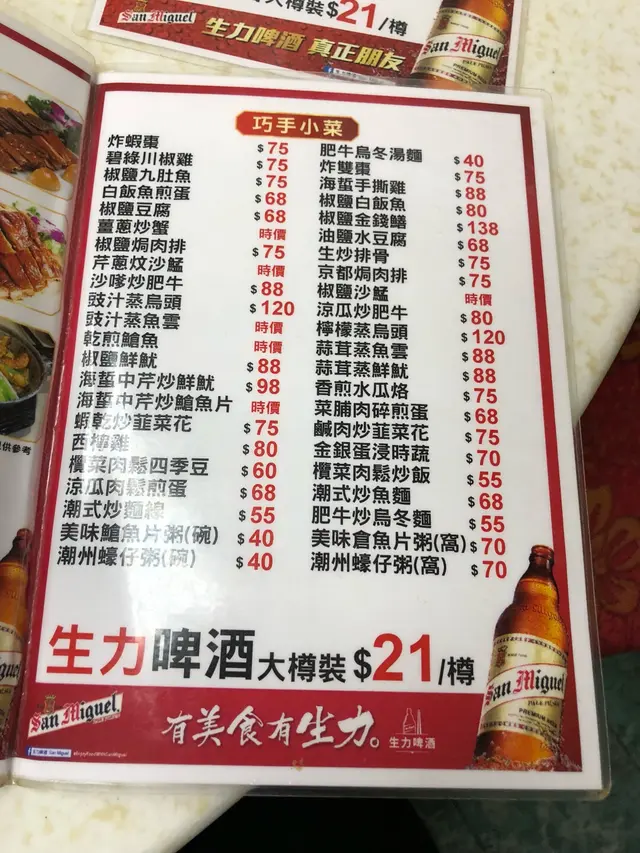 大樽裝 $21/樽
San Miguel
生力啤酒 真正朋友
San Miguel
PALE PILSEN
巧手小菜
炸蝦棗 $75
碧綠川椒雞 $75
椒鹽九肚魚 $75
白飯魚煎蛋 $68
椒鹽豆腐 $68
薑蔥炒蟹 時價
椒鹽焗肉排 $75
芹蔥炆沙鯭 時價
沙嗲炒肥牛 $88
豉汁蒸烏頭 $120
豉汁蒸魚雲 時價
乾煎鱠魚 時價
椒鹽鮮魷 $88
海蜇中芹炒鮮魷 $98
海蜇中芹炒鱠魚片 時價
蝦乾炒韮菜花 $75
西檸雞 $80
欖菜肉鬆四季豆 $60
涼瓜肉鬆煎蛋 $68
潮式炒麵線 $55
美味鱠魚片粥(碗) $40
潮州蠔仔粥(碗) $40
肥牛烏冬湯麵 $40
炸雙棗 $75
海蜇手撕雞 $88
椒鹽白飯魚 $80
椒鹽金錢鱔 $138
油鹽水豆腐 $68
生炒排骨 $75
京都焗肉排 $75
椒鹽沙鯭 時價
涼瓜炒肥牛 $80
檸檬蒸烏頭 $120
蒜茸蒸魚雲 $88
蒜茸蒸鮮魷 $88
香煎水瓜烙 $75
菜脯肉碎煎蛋 $68
鹹肉炒韮菜花 $75
金銀蛋浸時蔬 $70
欖菜肉鬆炒飯 $55
潮式炒魚麵 $68
肥牛炒烏冬麵 $55
美味倉魚片粥(窩) $70
潮州蠔仔粥(窩) $70
供參考
生力啤酒大樽裝 $21/樽
San Miguel
有美食有生力。
生力啤酒
San Miguel
PALE PILSEN
PREMIUM BEER